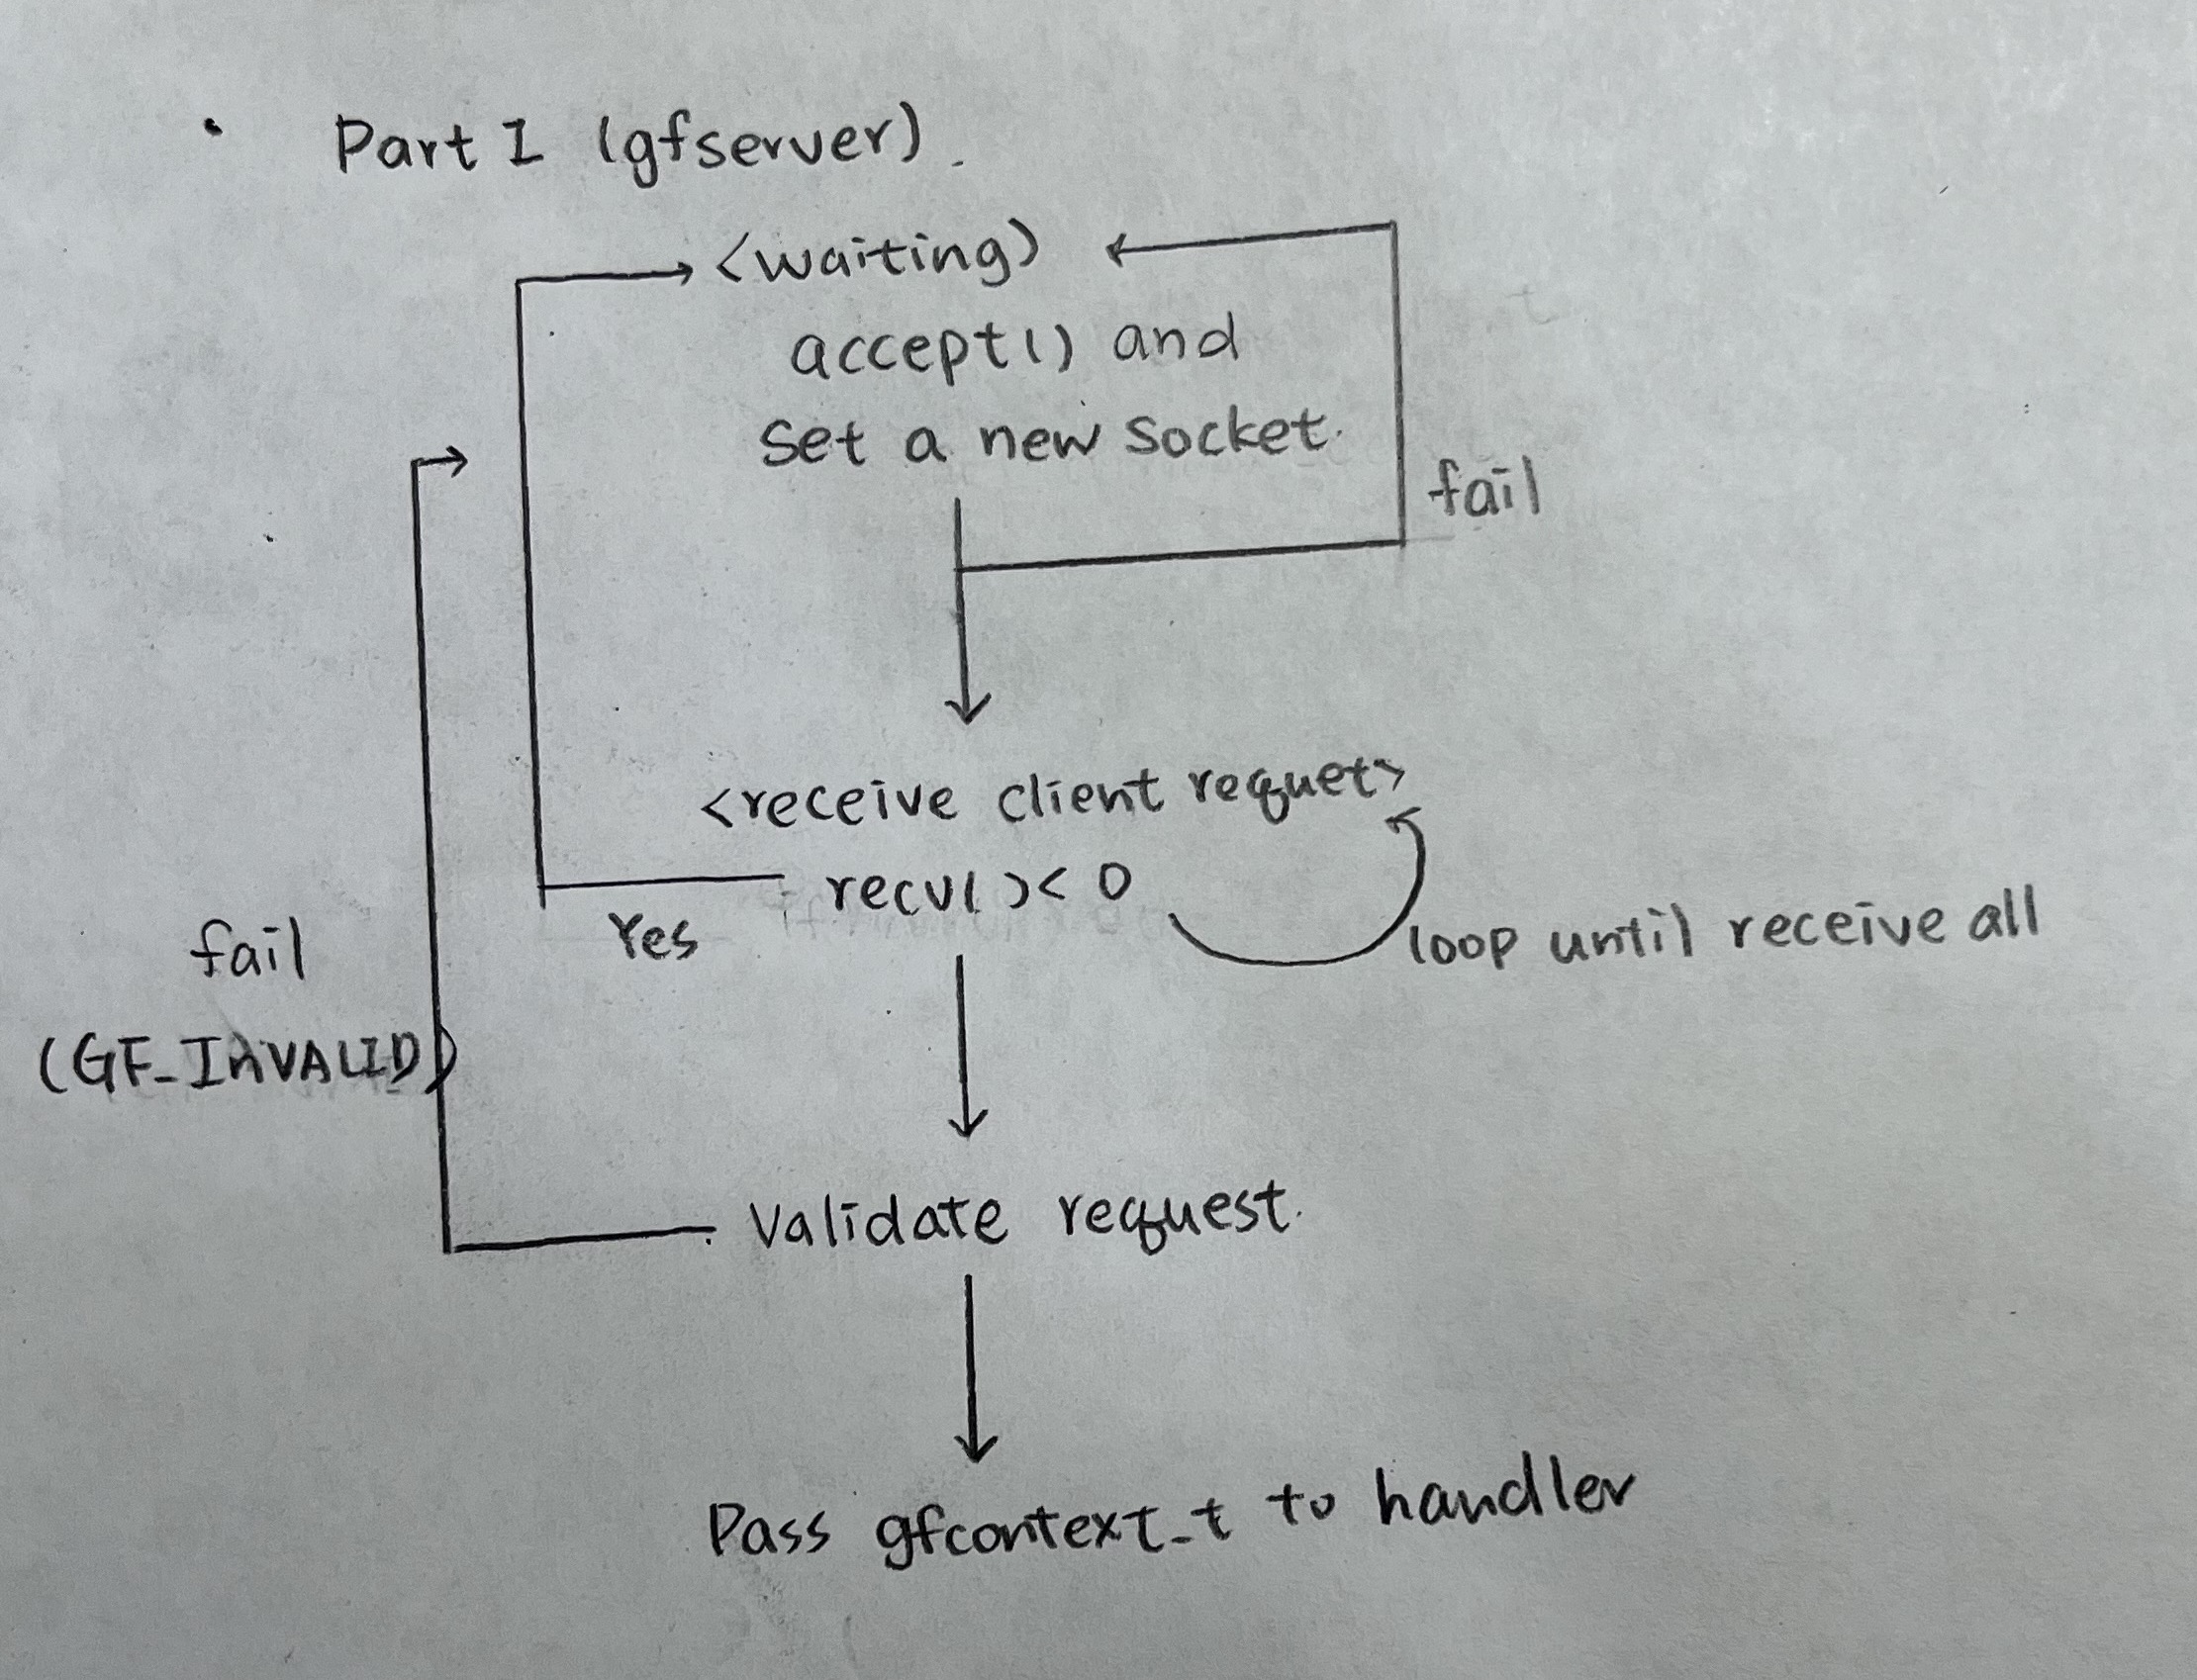 • Part I (gfserver).
<waiting>
accept() and
Set a new Socket.
fail
<receive client requet>
recv( ) < 0
Yes
loop until receive all
fail
(GF_INVALID)
Validate request.
Pass gfcontext_t to handler